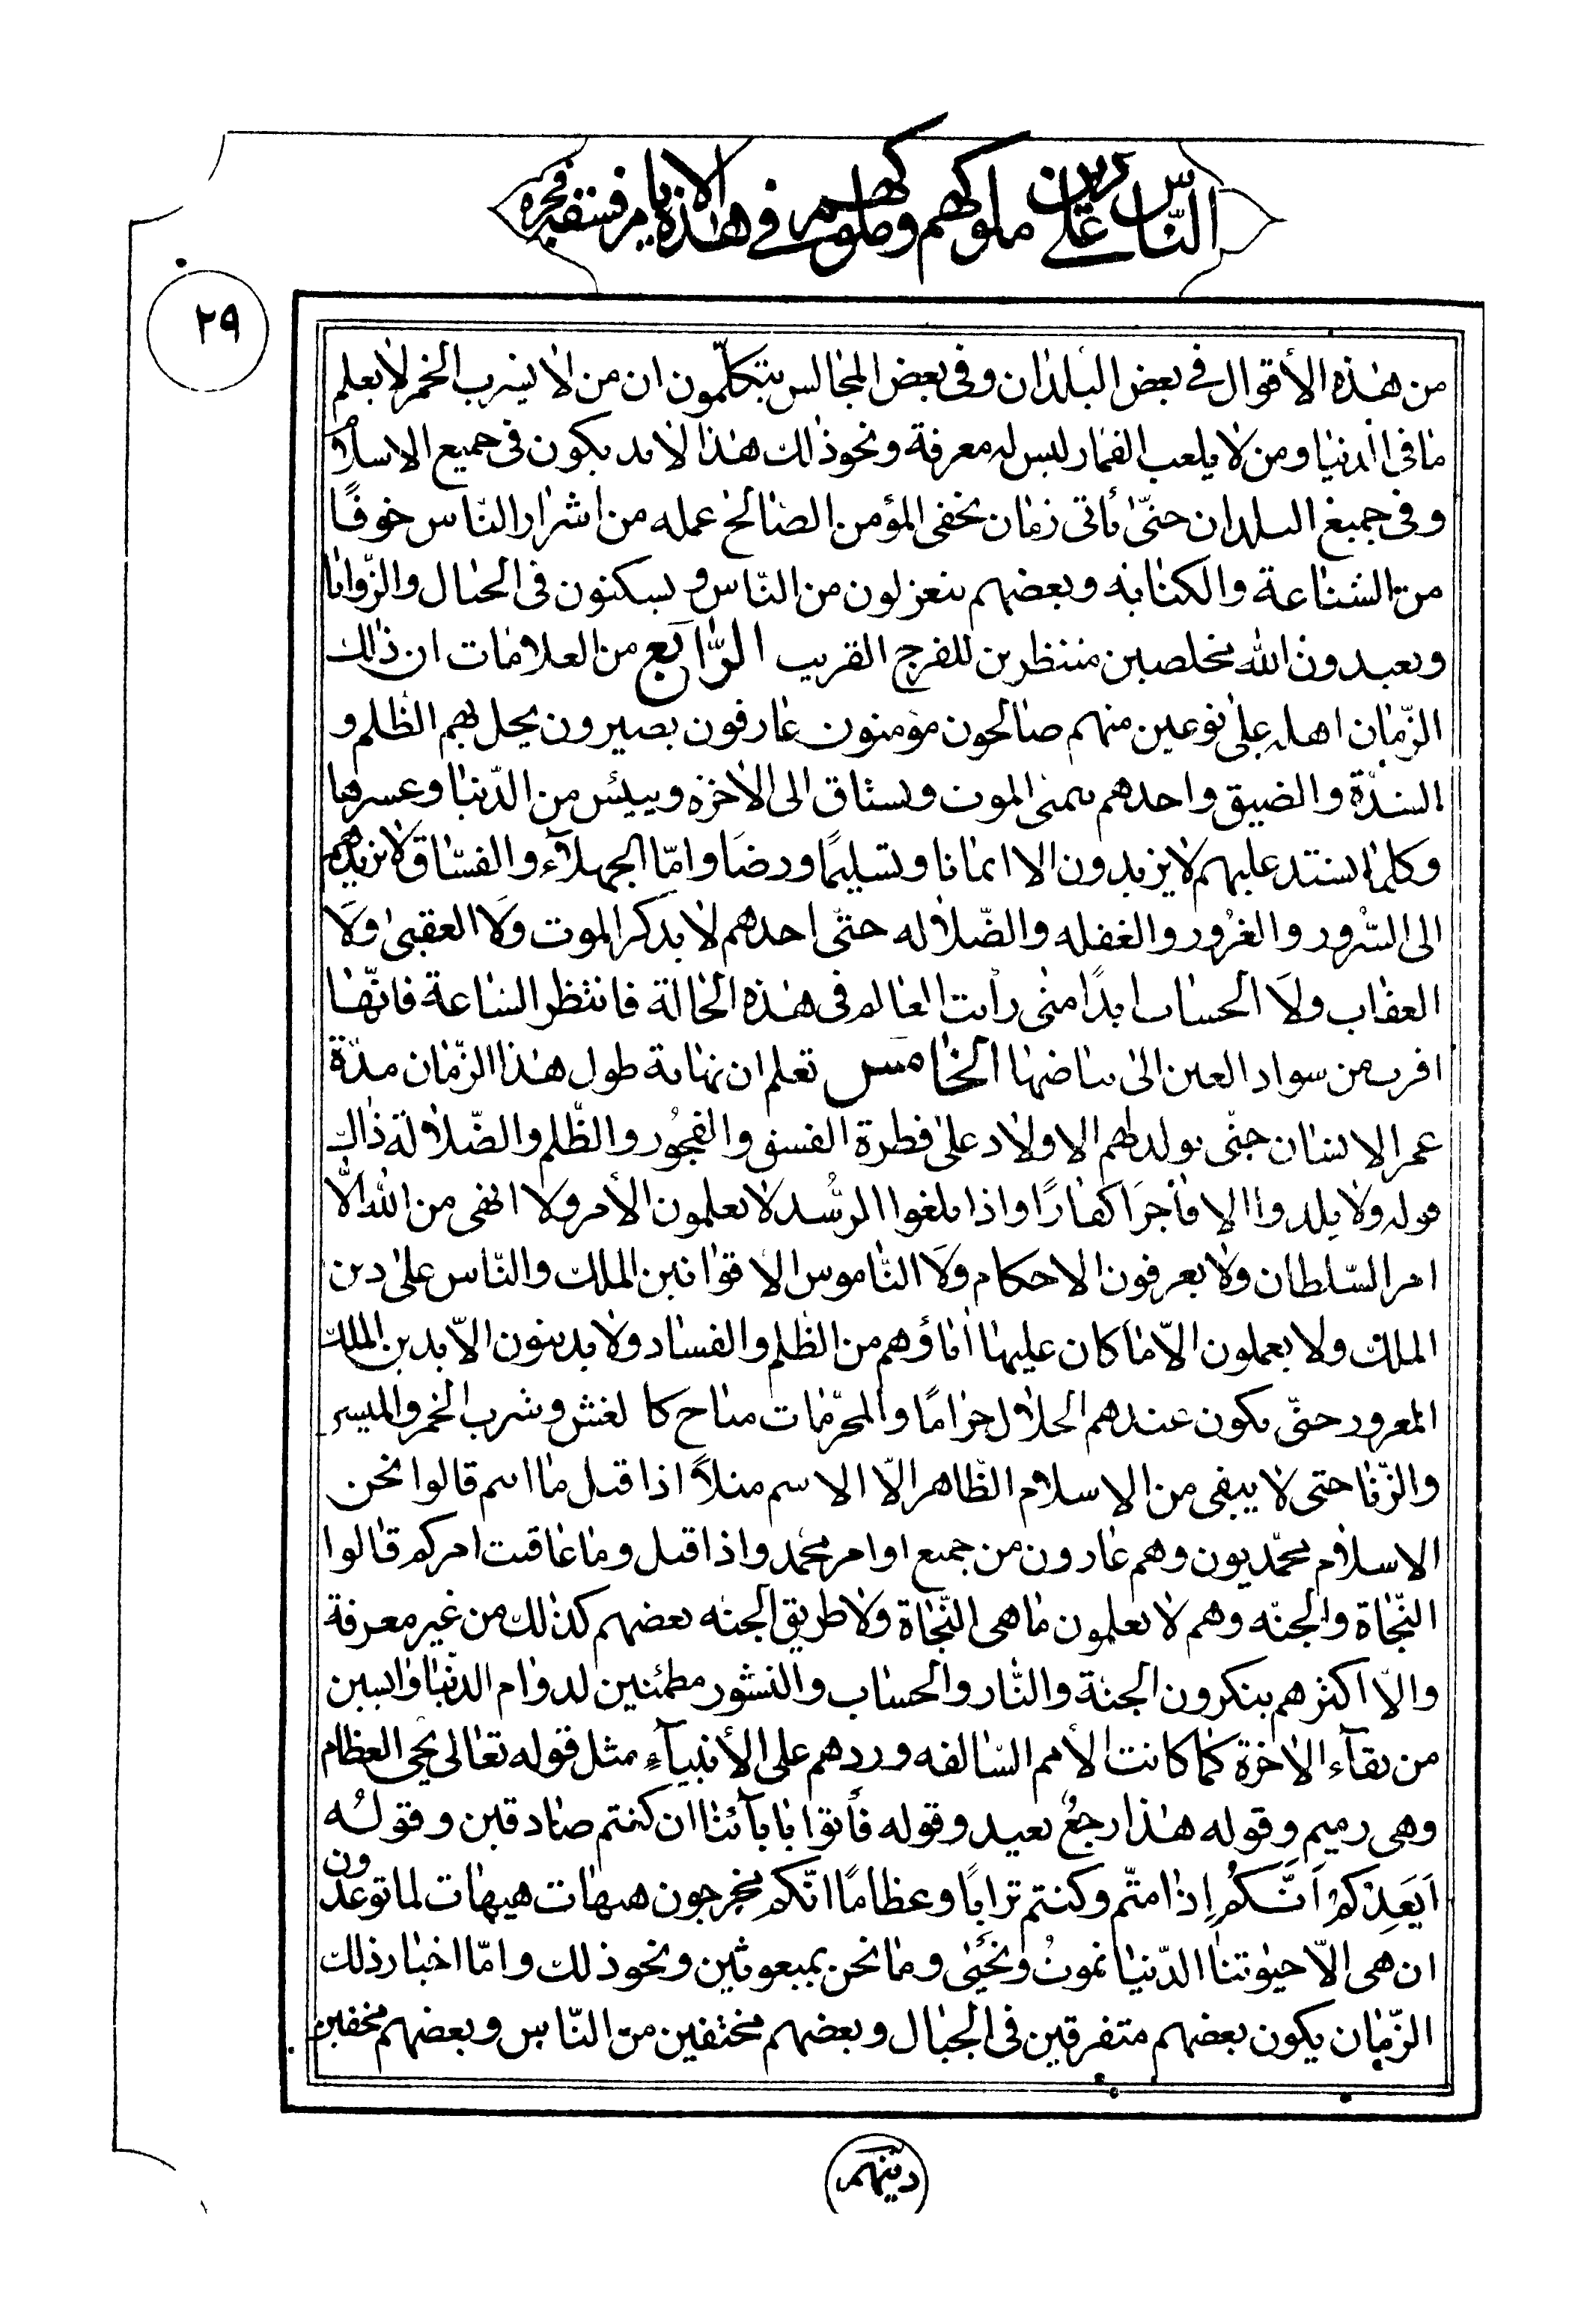 الناس على دين ملوكهم وملوكهم في هذه الايام فسقه فجره
٢٩
من هٰذه الأقوال فى بعض البلدان وفى بعض المجالس يتكلّمون ان من لا يشرب الخمر لا يعلم
ما فى الدنيا ومن لا يلعب القمار ليس له معرفة ونحو ذلك هذا لا بد يكون فى جميع الاسلام
وفى جميع البلدان حتّى يأتى زمان يخفى المؤمن الصالح عمله من اشرار النّاس خوفًا
من الشناعة والكنايه وبعضهم ينعزلون من النّاس و يسكنون فى الجبال والزّوايا
ويعبدون الله مخلصين منتظرين للفرج القريب الرّابع من العلامات ان ذالك
الزّمان اهله على نوعين منهم صالحون مؤمنون عارفون بصيرون يحل بهم الظلم و
الشدّة والضيق واحدهم يتمنى الموت ويشتاق الى الاخره وييئس من الدّنيا وعسرها
وكلما يشتد عليهم لا يزيدون الا ايمانا وتسليمًا ورضًا وامّا الجهلآء والفسّاق لا يزيدهم
الى السّرور والغرُور والغفله والضّلاله حتّى احدهم لا يذكر الموت ولَا العقبىٰ ولَا
العقاب ولَا الحساب ابدًا متى رأيت العالم فى هٰذه الحالة فانتظر الساعة فانّها
اقرب من سواد العين الى بياضها الخامس تعلم ان نهاية طول هٰذا الزّمان مدّة
عمر الانسان حتّى يولد لهم الاولاد على فطرة الفسق والفجُور والظّلم والضّلالة ذالك
قوله ولا يلدوا الا فاجرَا كفارًا واذا بلغوا الرّشُد لا يعلمون الأمر ولا النهى من الله الّا
امر السّلطان ولا يعرفون الاحكام ولَا النّاموس الا قوانين الملك والنّاس على دين
الملك ولا يعملون الّا ما كان عليها اباؤهم من الظلم والفساد ولا يدينون الّا بدين الملك
المغرور حتّى يكون عندهم الحلال حرامًا والمحرّمات مباح كا لغش وشرب الخمر والميسر
والزّنا حتى لا يبقى من الاسلام الظّاهر الّا الاسم مثلاً اذا قيل ما اسم قالوا نحن
الاسلام محمّديون وهم عارون من جميع اوامر محمد واذا قيل وما عاقبت امركم قالوا
النّجاة والجنّه وهم لا يعلمون ما هى النّجاة ولا طريق الجنه بعضهم كذلك من غير معرفة
والّا اكثرهم ينكرون الجنة والنّار والحساب والنشور مطمئنين لدوام الدنيا وايسين
من بقآء الاخرة كما كانت الأمم السّالفه وردهم على الأنبيآء مثل قوله تعالى يحى العظام
وهى رميم وقوله هٰذا رجعٌ بعيد وقوله فأتوا بابآئنا ان كنتم صادقين وقولُه
اَيَعِدُكمْ اَنَّكُم اِذا متّم وكنتم ترابًا وعظامًا انّكم مخرجون هيهات هيهات لما توعدون
ان هى الّا حيٰوتنا الدّنيا نموتُ ونحيٰى وما نحن بمبعوثين ونحو ذلك وامّا اخبار ذلك
الزّمان يكون بعضهم متفرقين فى الجبال وبعضهم مختفين من النّاس وبعضهم مخفين
دينهم